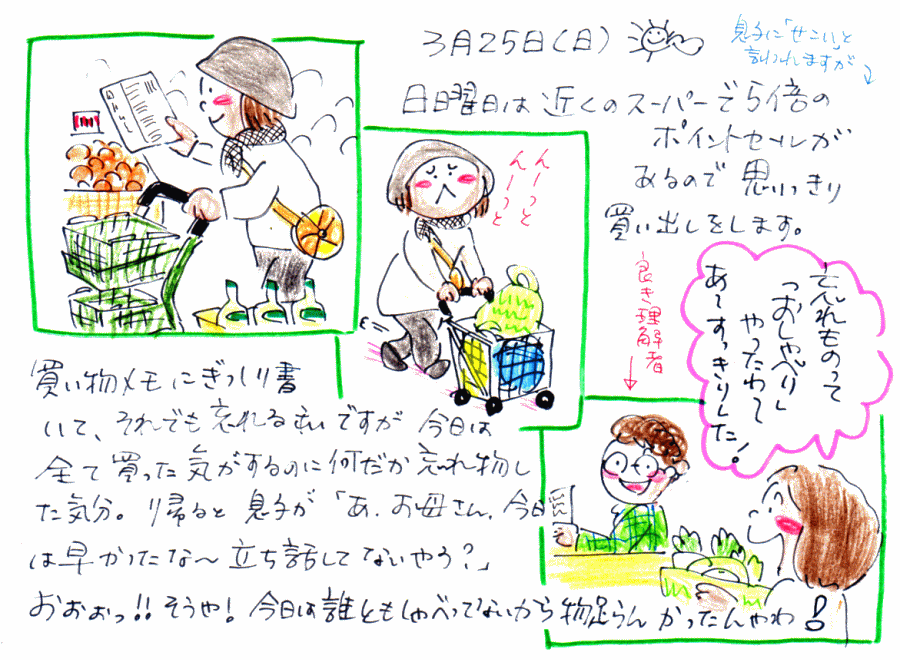 3月25日(日)
息子に「せこい」と
言われますが
日曜日は近くのスーパーで5倍の
ポイントセールが
あるので思いっきり
買い出しをします。
んーっと
んーっと
良き理解者
忘れものって
「おしゃべり」
やったわ〜
あ〜すっきりした!
買い物メモにぎっしり書
いて、それでも忘れる
ですが今日は
全て買った気がするのに何だか忘れ物し
た気分。帰ると息子が「あ、お母さん、今日
は早かったな〜立ち話してないやろ?」
おおぉっ!!そうや!今日は誰ともしゃべってないから物足らんかったんやわ!